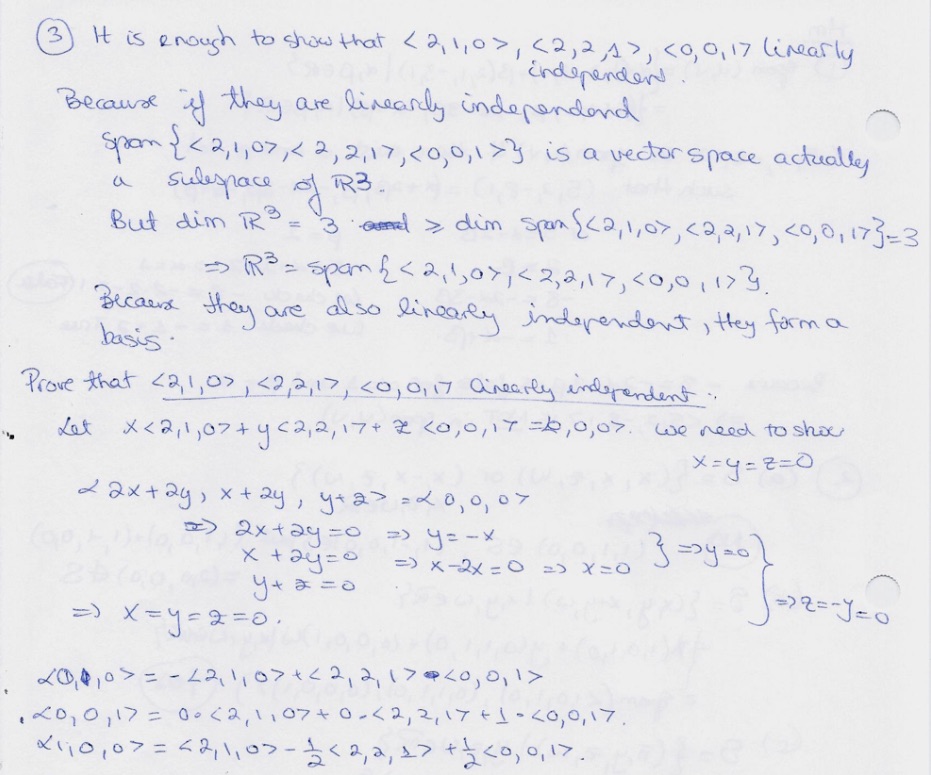 ③ It is enough to show that <2,1,0>, <2,2 1>, <0,0,1> linearly
independent.
Because if they are linearly independend
span {<2,1,0>,<2,2,1>,<0,0,1>} is a vector space actually
a subspace of R³.
But dim R³ = 3 ≥ dim span{<2,1,0>,<2,2,1>,<0,0,1>}=3
⇒ R³ = span{<2,1,0>,<2,2,1>,<0,0,1>}.
Because they are also linearly independent, they form a
basis.
Prove that <2,1,0>,<2,2,1>,<0,0,1> linearly independent:
Let x<2,1,0>+y<2,2,1>+z<0,0,1>=<0,0,0>. we need to show
x=y=z=0
<2x+2y, x+2y, y+z> =<0,0,0>
⇒ 2x+2y=0 ⇒ y=-x
x+2y=0 ⇒ x-2x=0 ⇒ x=0 } ⇒y=0
y+z=0 } ⇒z=-y=0
⇒ x=y=z=0.
<0,1,0> = -<2,1,0>+<2,2,1>-<0,0,1>
<0,0,1> = 0·<2,1,0>+0·<2,2,1>+1·<0,0,1>.
<1,0,0> = <2,1,0>-1/2<2,2,1>+1/2<0,0,1>.